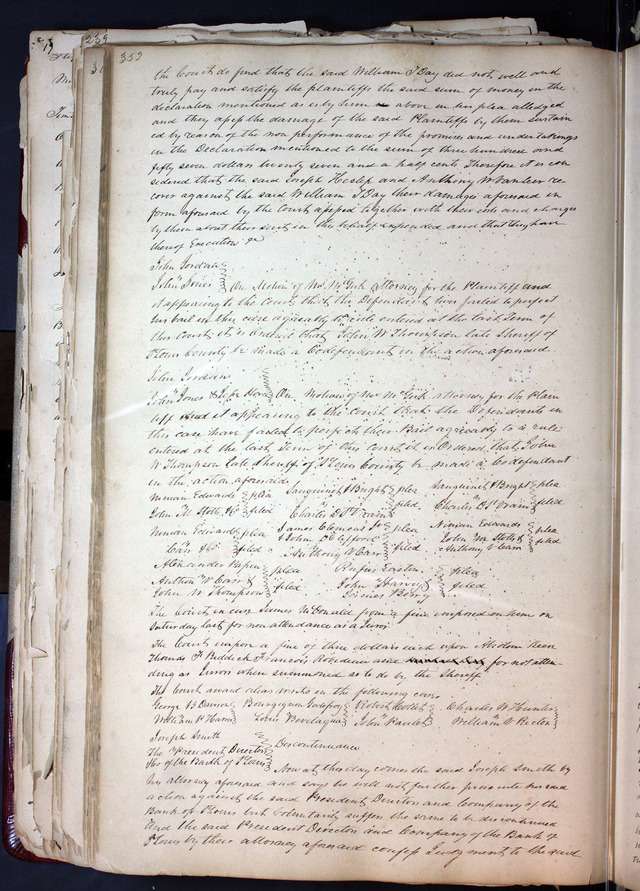 353
the Court do find that the said William T Day did not well and
truly pay and satisfy the plaintiffs the said sum of money in the
declaration mentioned as is by him above in his plea alledged
and they assess the damage of the said Plaintiffs by them sustain
ed by reason of the non performance of the promises and undertakings
in the Declaration mentioned to the sum of three hundred and
fifty seven dollars twenty seven and a half cents Therefore it is con
sidered that the said Joseph Heslep and Anthony W Vanleer re
cover against the said William T Day their damages aforesaid in
form aforesaid by the Court assessed together with their costs and charges
by them about their suit in this behalf expended and that they have
thereof Execution &c
John Jordan
John Jones On Motion of Mr McGirk attorney for the Plaintiff and
it appearing to the Court that the Defendant has failed to perfect
his bail in this case agreeably to rule entered at the last Term of
this Court it is Ordered that John W Thompson late Sheriff of
St Louis County be made a Codefendant in the action aforesaid
John Jordan
John Jones & On Motion of Mr McGirk attorney for the Plain
tiff it appearing to the Court that the Defendants in
this case have failed to perfect their Bail agreeably to a rule
entered at the last Term of this Court it is Ordered that John
W Thompson late Sheriff of St Louis County be made a Codefendant
in the action aforesaid
Ninian Edwards plea Sanguinet & Bright plea Sanguinet & Bright plea
John M Stotts &c filed Charles D St Vrain Charles D St Vrain filed
Ninian Edwards plea James Clement Jr plea Ninian Edwards plea
Carr &c filed & John O Clifford John M Stotts filed
Anthony W Carr filed Anthony W Carr
Alexander plea Rufus Easton plea
Anthony W Carr filed John Harvey filed
John W Thompson
The Court in case James McDonald from a fine imposed on him on
Saturday last for non attendance as a Juror
The Court impose a fine of three dollars each upon Absolom Keen
Thomas F Riddick Francois and for not atten-
ding as Jurors when summoned so to do by the Sheriff
The Court award alias writs in the following cases
George Bourgignon Robert Charles W Hunter
William Louis Bevelaqua John Paulet William V Rector
Joseph Smith
The President Director Discontinuance
&c of the Bank of St Louis
Now at this day comes the said Joseph Smith by
his attorney aforesaid and says he will not further prosecute his said
action against the said President Director and Company of the
Bank of St Louis but voluntarily suffers the same to be discontinued
And the said President Director and Company of the Bank of
St Louis by their attorney aforesaid confess Judgment to the said